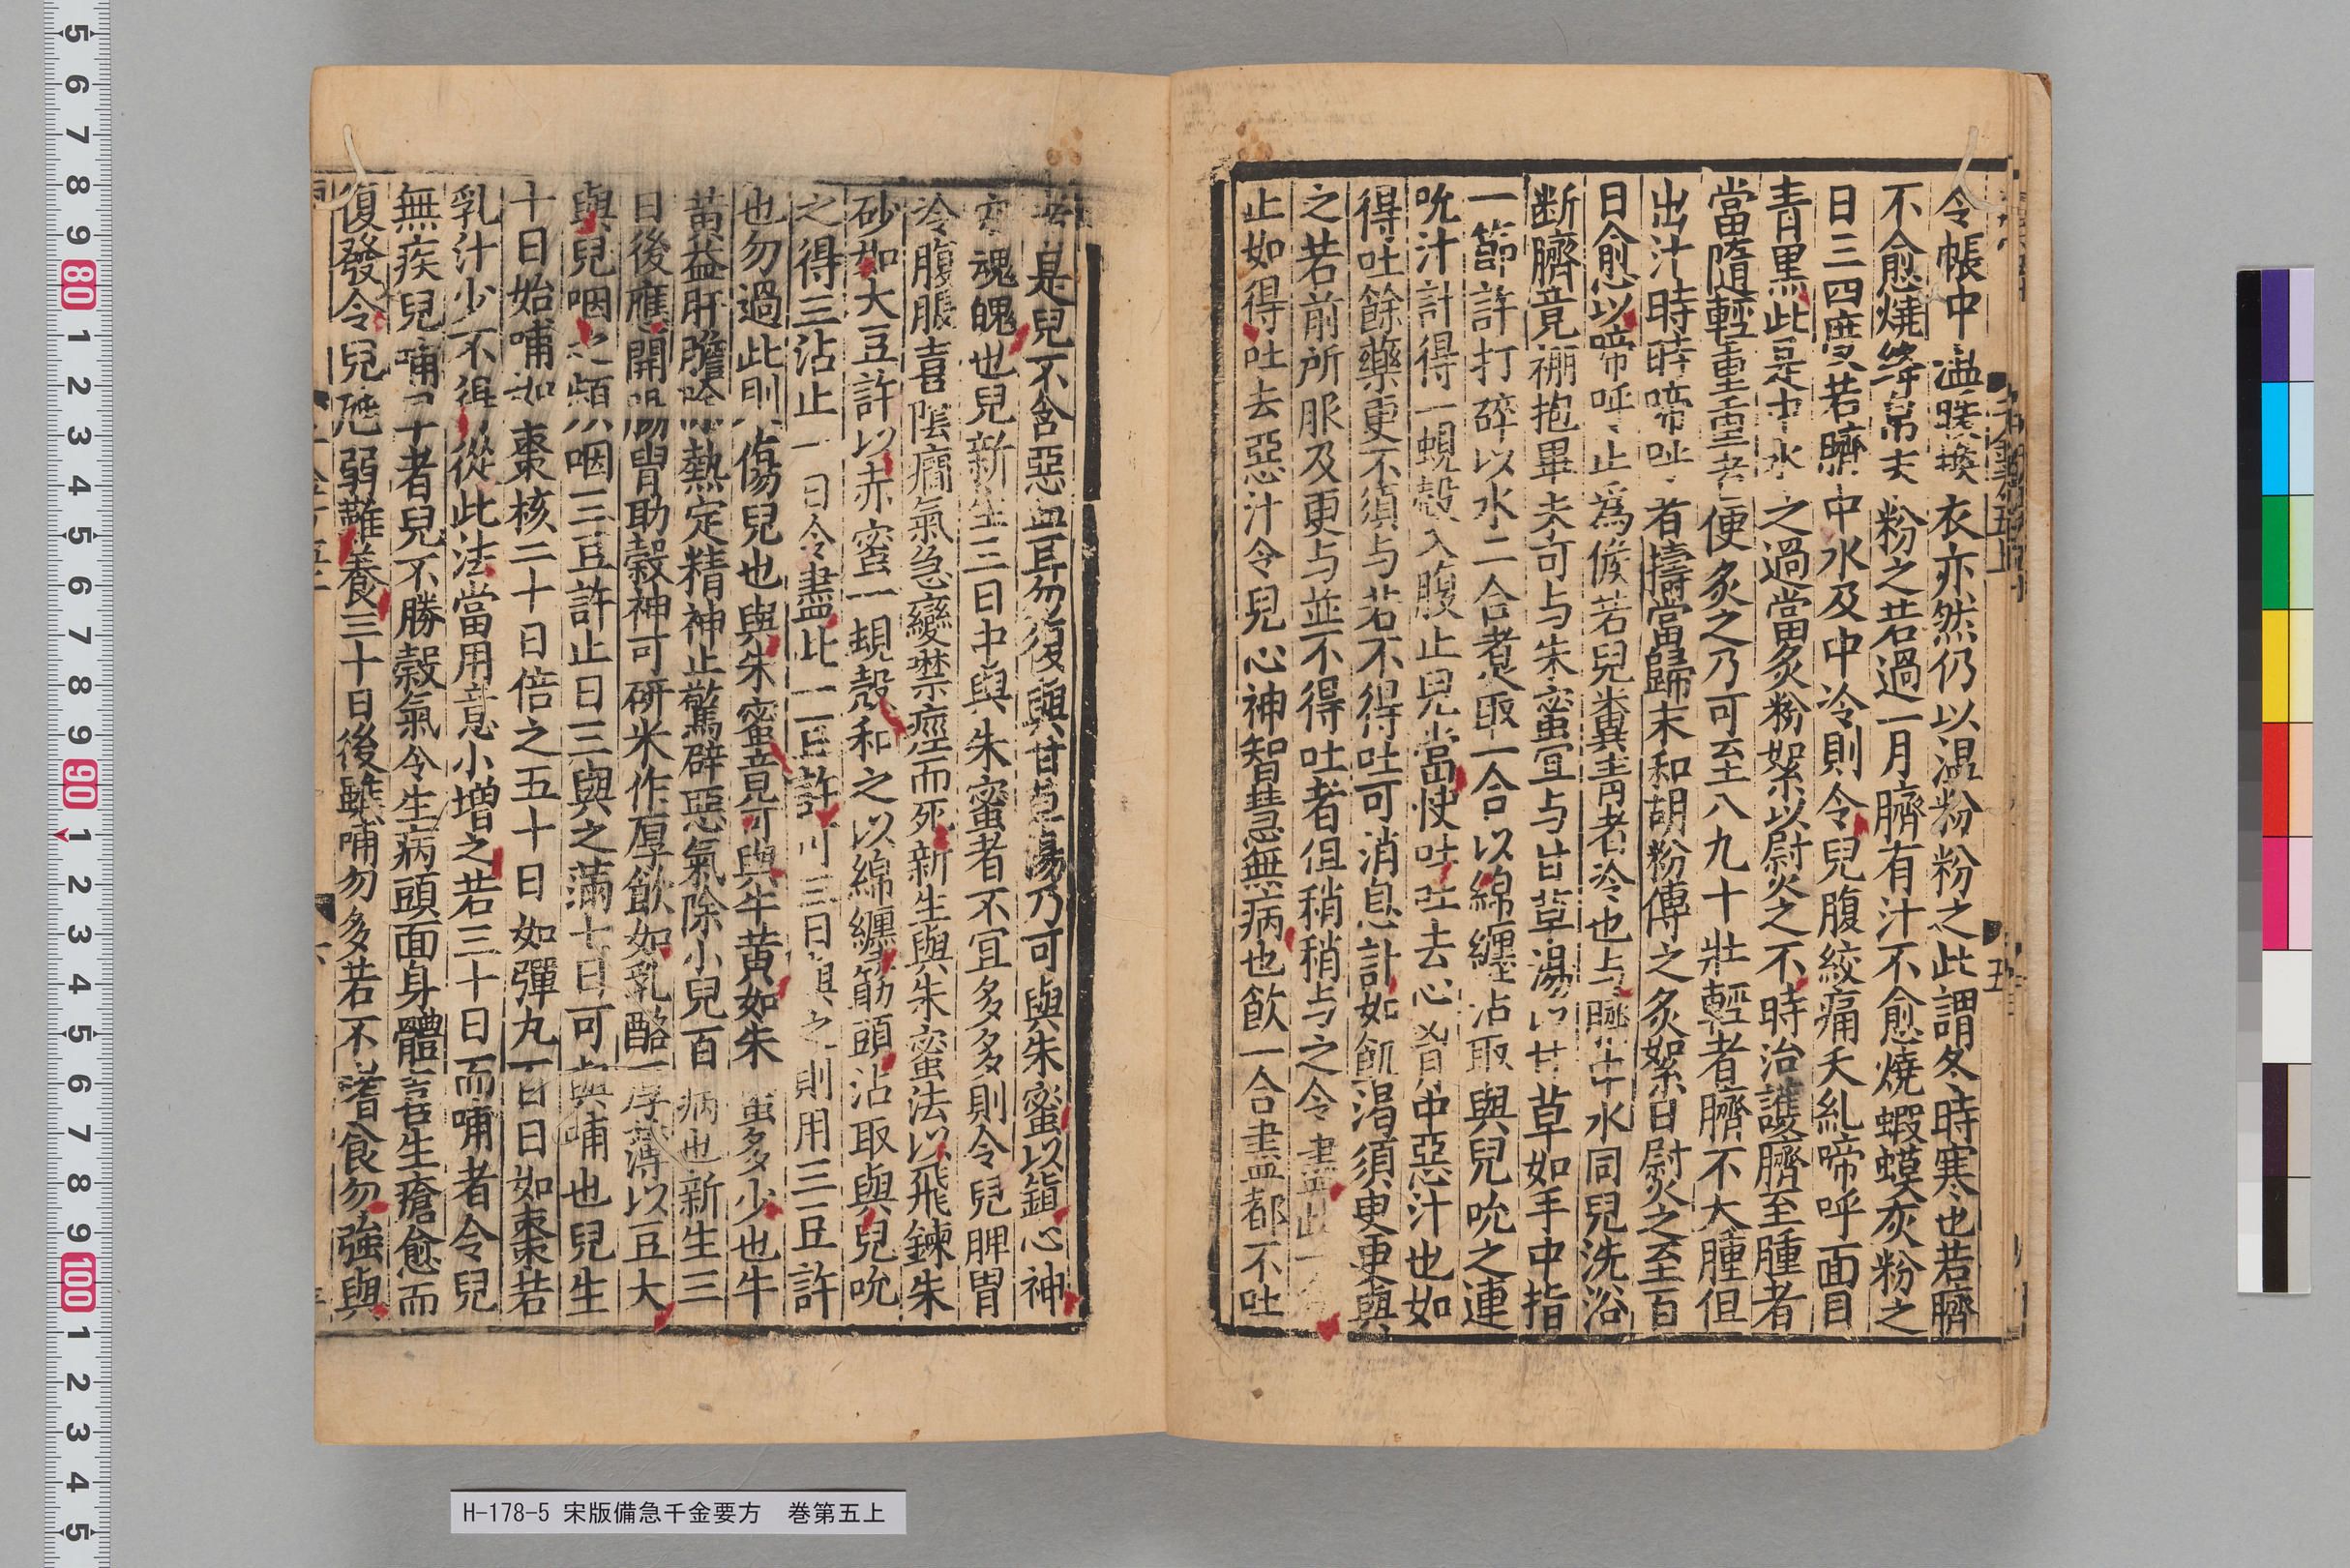 令帳中温暖換衣亦然仍以温粉粉之此謂冬時寒也若臍
不愈燒絳帛末粉之若過一月臍有汁不愈燒蝦蟇灰粉之
日三四度若臍中水及中冷則令兒腹絞痛夭糺啼呼面目
青黒此是中水之過當炙粉絮以熨之不時治護臍至腫者
當隨輕重重者便炙之乃可至八九十壯輕者臍不大腫但
出汁時時啼呼者擣當歸末和胡粉傅之炙絮日熨之至百
日愈以啼呼止爲候若兒糞青者冷也与臍中水同兒洗浴
断臍竟襁抱畢未可与朱蜜宜与甘草湯以甘草如手中指
一節許打碎以水二合煮取一合以綿纏沾取與兒吮之連
吮汁計得一蜆殻入腹止兒當快吐吐去心胷中惡汁也如
得吐餘藥更不須与若不得吐可消息計如飢渇須臾更與
之若前所服及更与並不得吐者但稍稍与之令盡此一合
止如得吐去惡汁令兒心神智慧無病也飲一合盡都不吐
者是兒不含惡血耳勿復與甘草湯乃可與朱蜜以鎮心神
安魂魄也兒新生三日中與朱蜜者不宜多多則令兒脾胃
冷腹脹喜陰癎氣急變噤痙而死新生與朱蜜法以飛鍊朱
砂如大豆許以赤蜜一蜆殻和之以綿纏筯頭沾取與兒吮
之得三沾止一日令盡此一豆許可三日與之則用三豆許
也勿過此則傷兒也與朱蜜竟可與牛黄如朱蜜多少也牛
黄益肝膽除熱定精神止驚辟惡氣除小兒百病也新生三
日後應開腸胃助穀神可研米作厚飲如乳酪厚薄以豆大
與兒咽之頻咽三豆許止日三與之滿七日可與哺也兒生
十日始哺如棗核二十日倍之五十日如彈丸百日如棗若
乳汁少不得從此法當用意小增之若三十日而哺者令兒
無疾兒哺早者兒不勝穀氣令生病頭面身體喜生瘡愈而
復發令兒尫弱難養三十日後雖哺勿多若不嗜食勿強與
千金方五上
五
H-178-5 宋版備急千金要方　巻第五上